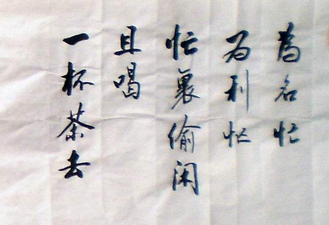 为名忙
为利忙
忙裏偷闲
且喝
一杯茶去